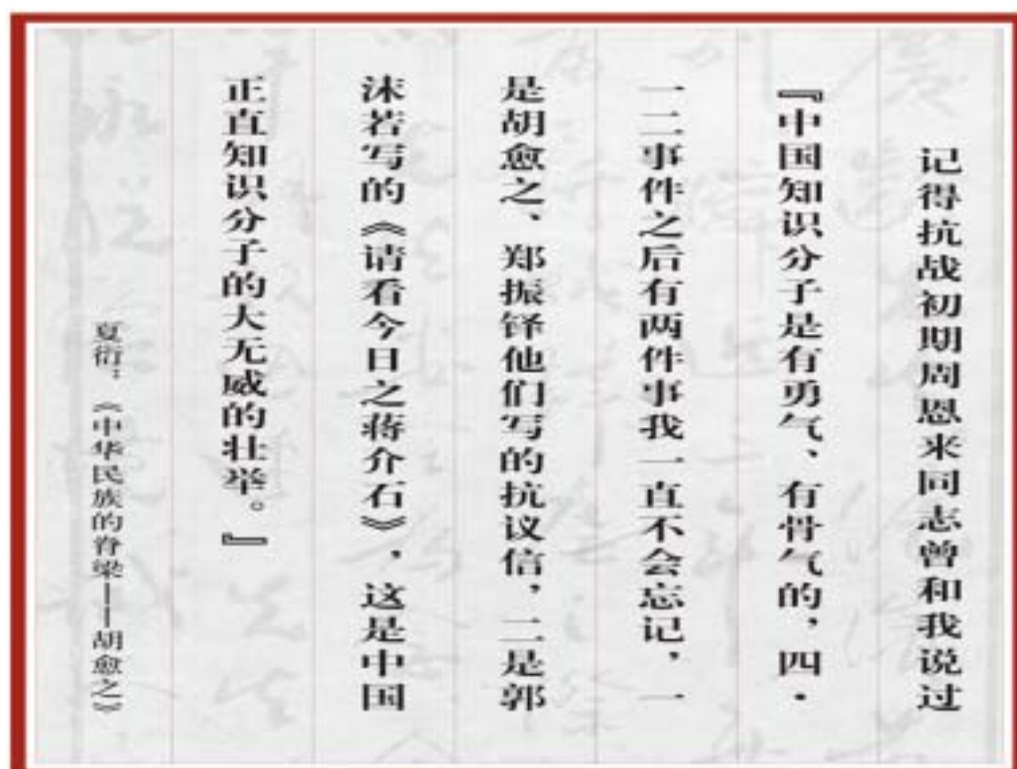 记得抗战初期周恩来同志曾和我说过
『中国知识分子是有勇气、有骨气的，四·
一二事件之后有两件事我一直不会忘记，一
是胡愈之、郑振铎他们写的抗议信，二是郭
沫若写的《请看今日之蒋介石》，这是中国
正直知识分子的大无威的壮举。』
夏衍：《中华民族的脊梁——胡愈之》